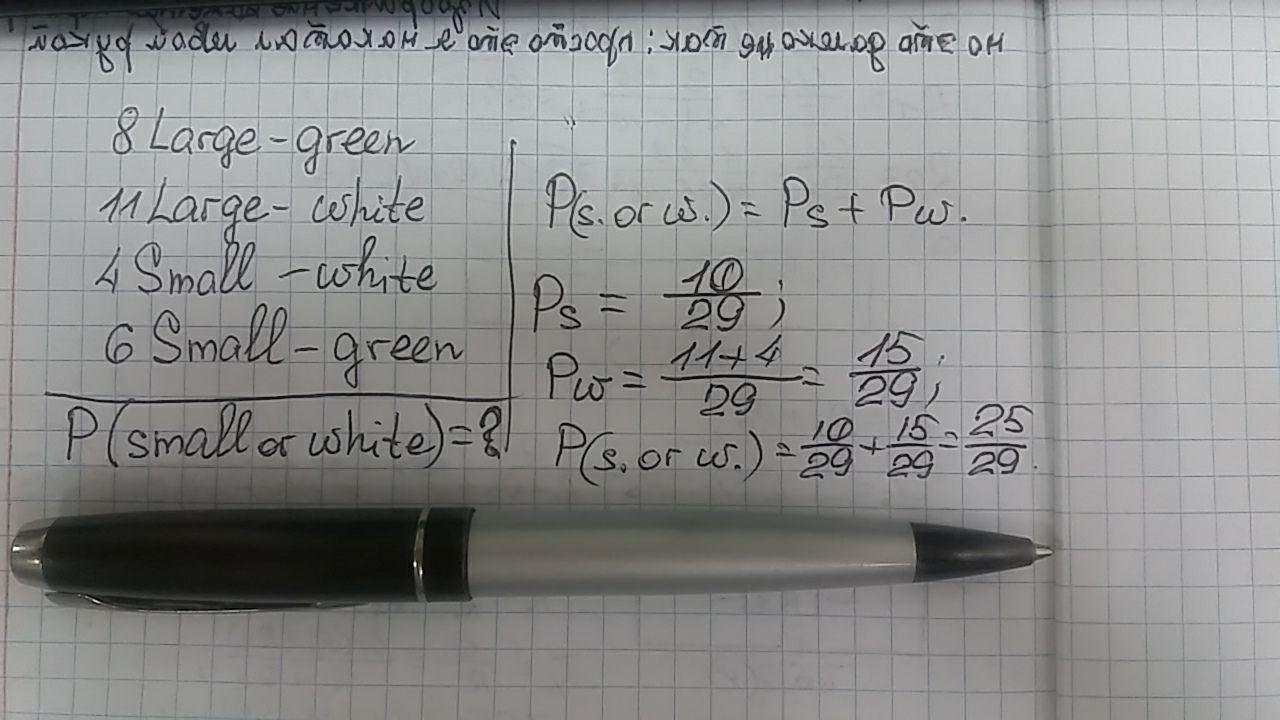 8 Large-green
11 Large-white
4 Small-white
6 Small-green
P(small or white)=?
P(s. or w.) = Ps + Pw.
Ps = 10/29;
Pw = 11+4/29 = 15/29;
P(s. or w.) = 10/29 + 15/29 = 25/29.